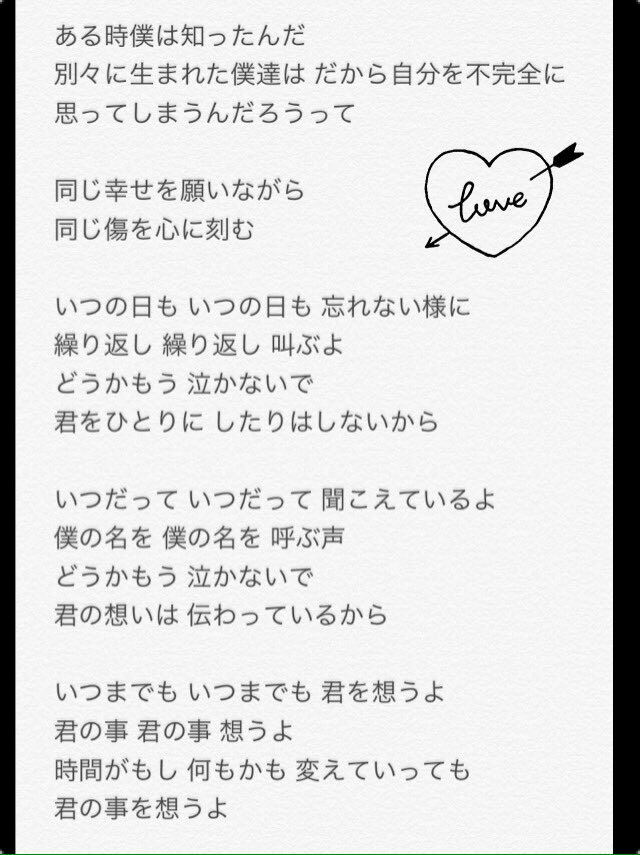 ある時僕は知ったんだ
別々に生まれた僕達は だから自分を不完全に
思ってしまうんだろうって
同じ幸せを願いながら
同じ傷を心に刻む
love
いつの日も いつの日も 忘れない様に
繰り返し 繰り返し 叫ぶよ
どうかもう 泣かないで
君をひとりに したりはしないから
いつだって いつだって 聞こえているよ
僕の名を 僕の名を 呼ぶ声
どうかもう 泣かないで
君の想いは 伝わっているから
いつまでも いつまでも 君を想うよ
君の事 君の事 想うよ
時間がもし 何もかも 変えていっても
君の事を想うよ